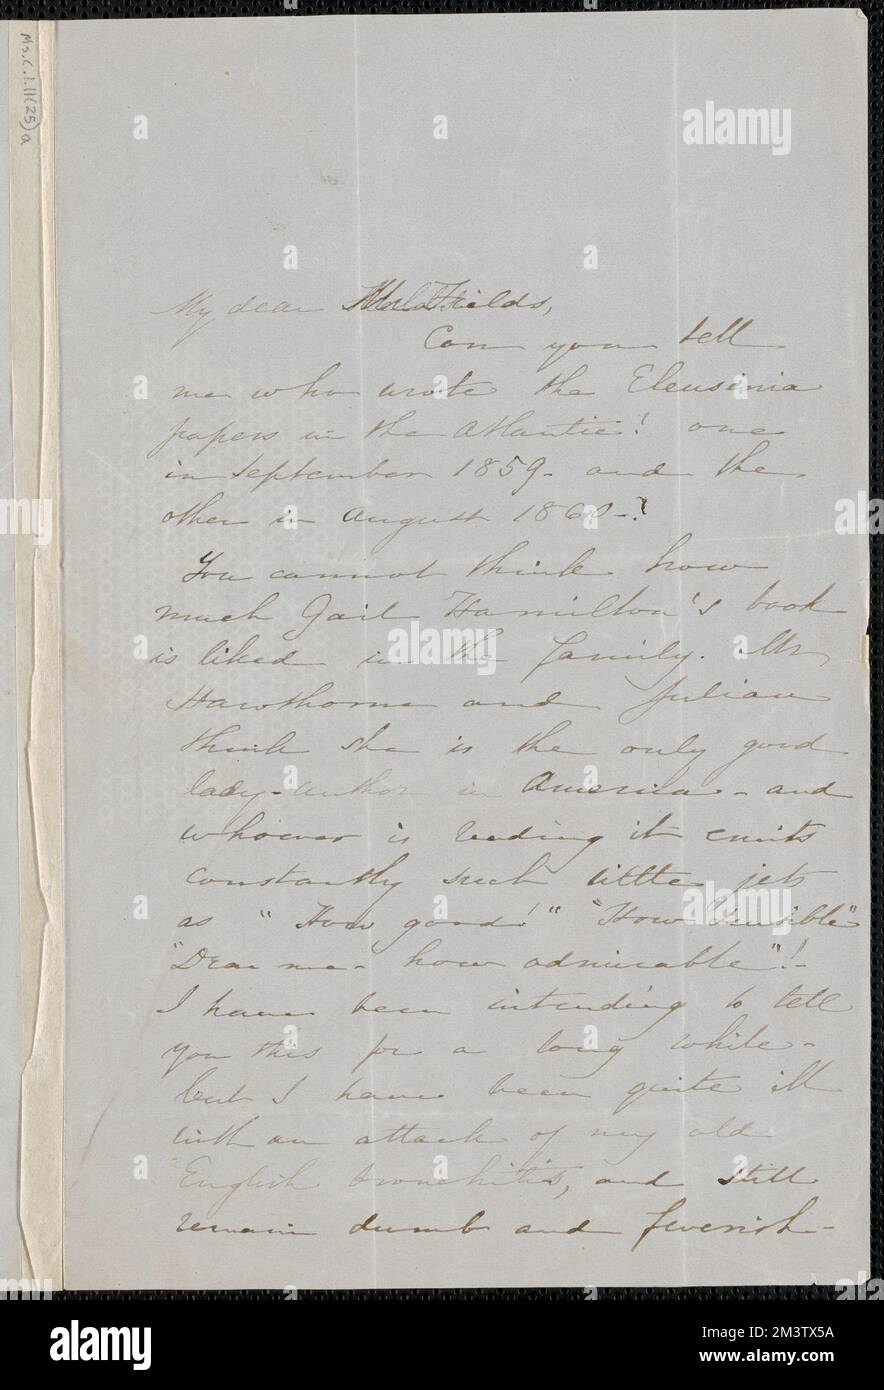 Ms.C.1.11(25)a
My dear Fields,
Can you tell
me who wrote the Eleusinia
papers in the Atlantic! one
in September 1859 - and the
other in August 1860 -?
You cannot think how
much Gail Hamilton's book
is liked in the family. Mr
Hawthorne and Julian
think she is the only good
lady-author in America - and
whoever is reading it emits
constantly such little jets
as "How good!" "How sensible"
"Dear me - how admirable"! -
I have been intending to tell
you this for a long while -
but I have been quite ill
with an attack of my old
English bronchitis, and still
remain dumb and feverish -
alamy
alamy
Image ID: 2M3TX5A
www.alamy.com